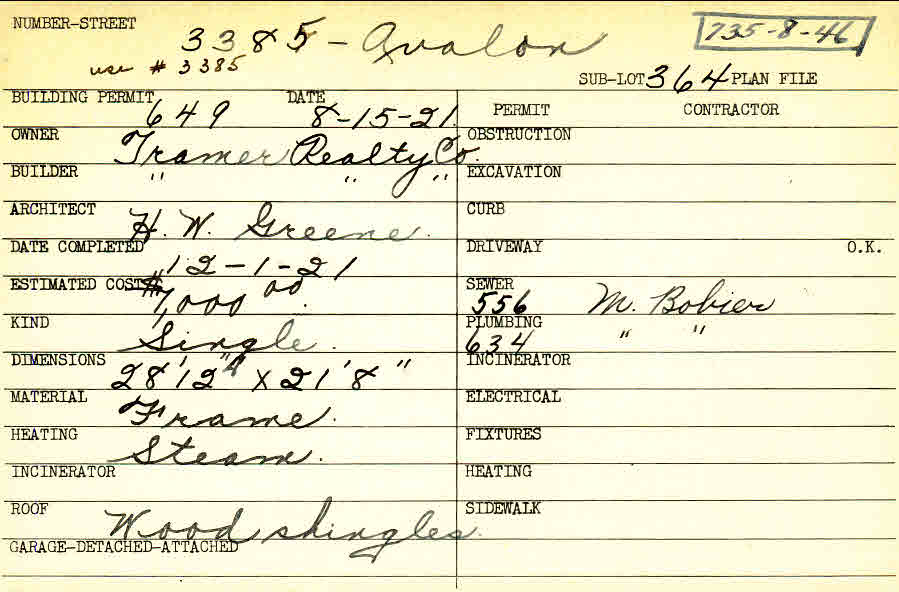 NUMBER-STREET 3385 - Avalon 735-8-46
use # 3385
SUB-LOT 364 PLAN FILE
BUILDING PERMIT 649 DATE 8-15-21. PERMIT CONTRACTOR
OWNER Tramer Realty Co. OBSTRUCTION
BUILDER " " " EXCAVATION
ARCHITECT H. W. Greene. CURB
DATE COMPLETED 12-1-21 DRIVEWAY O.K.
ESTIMATED COST $7,000 00. SEWER 556 M. Bobier
KIND Single. PLUMBING 634 " "
DIMENSIONS 28'2" x 21'8" INCINERATOR
MATERIAL Frame. ELECTRICAL
HEATING Steam. FIXTURES
INCINERATOR HEATING
ROOF Wood shingles. SIDEWALK
GARAGE-DETACHED-ATTACHED